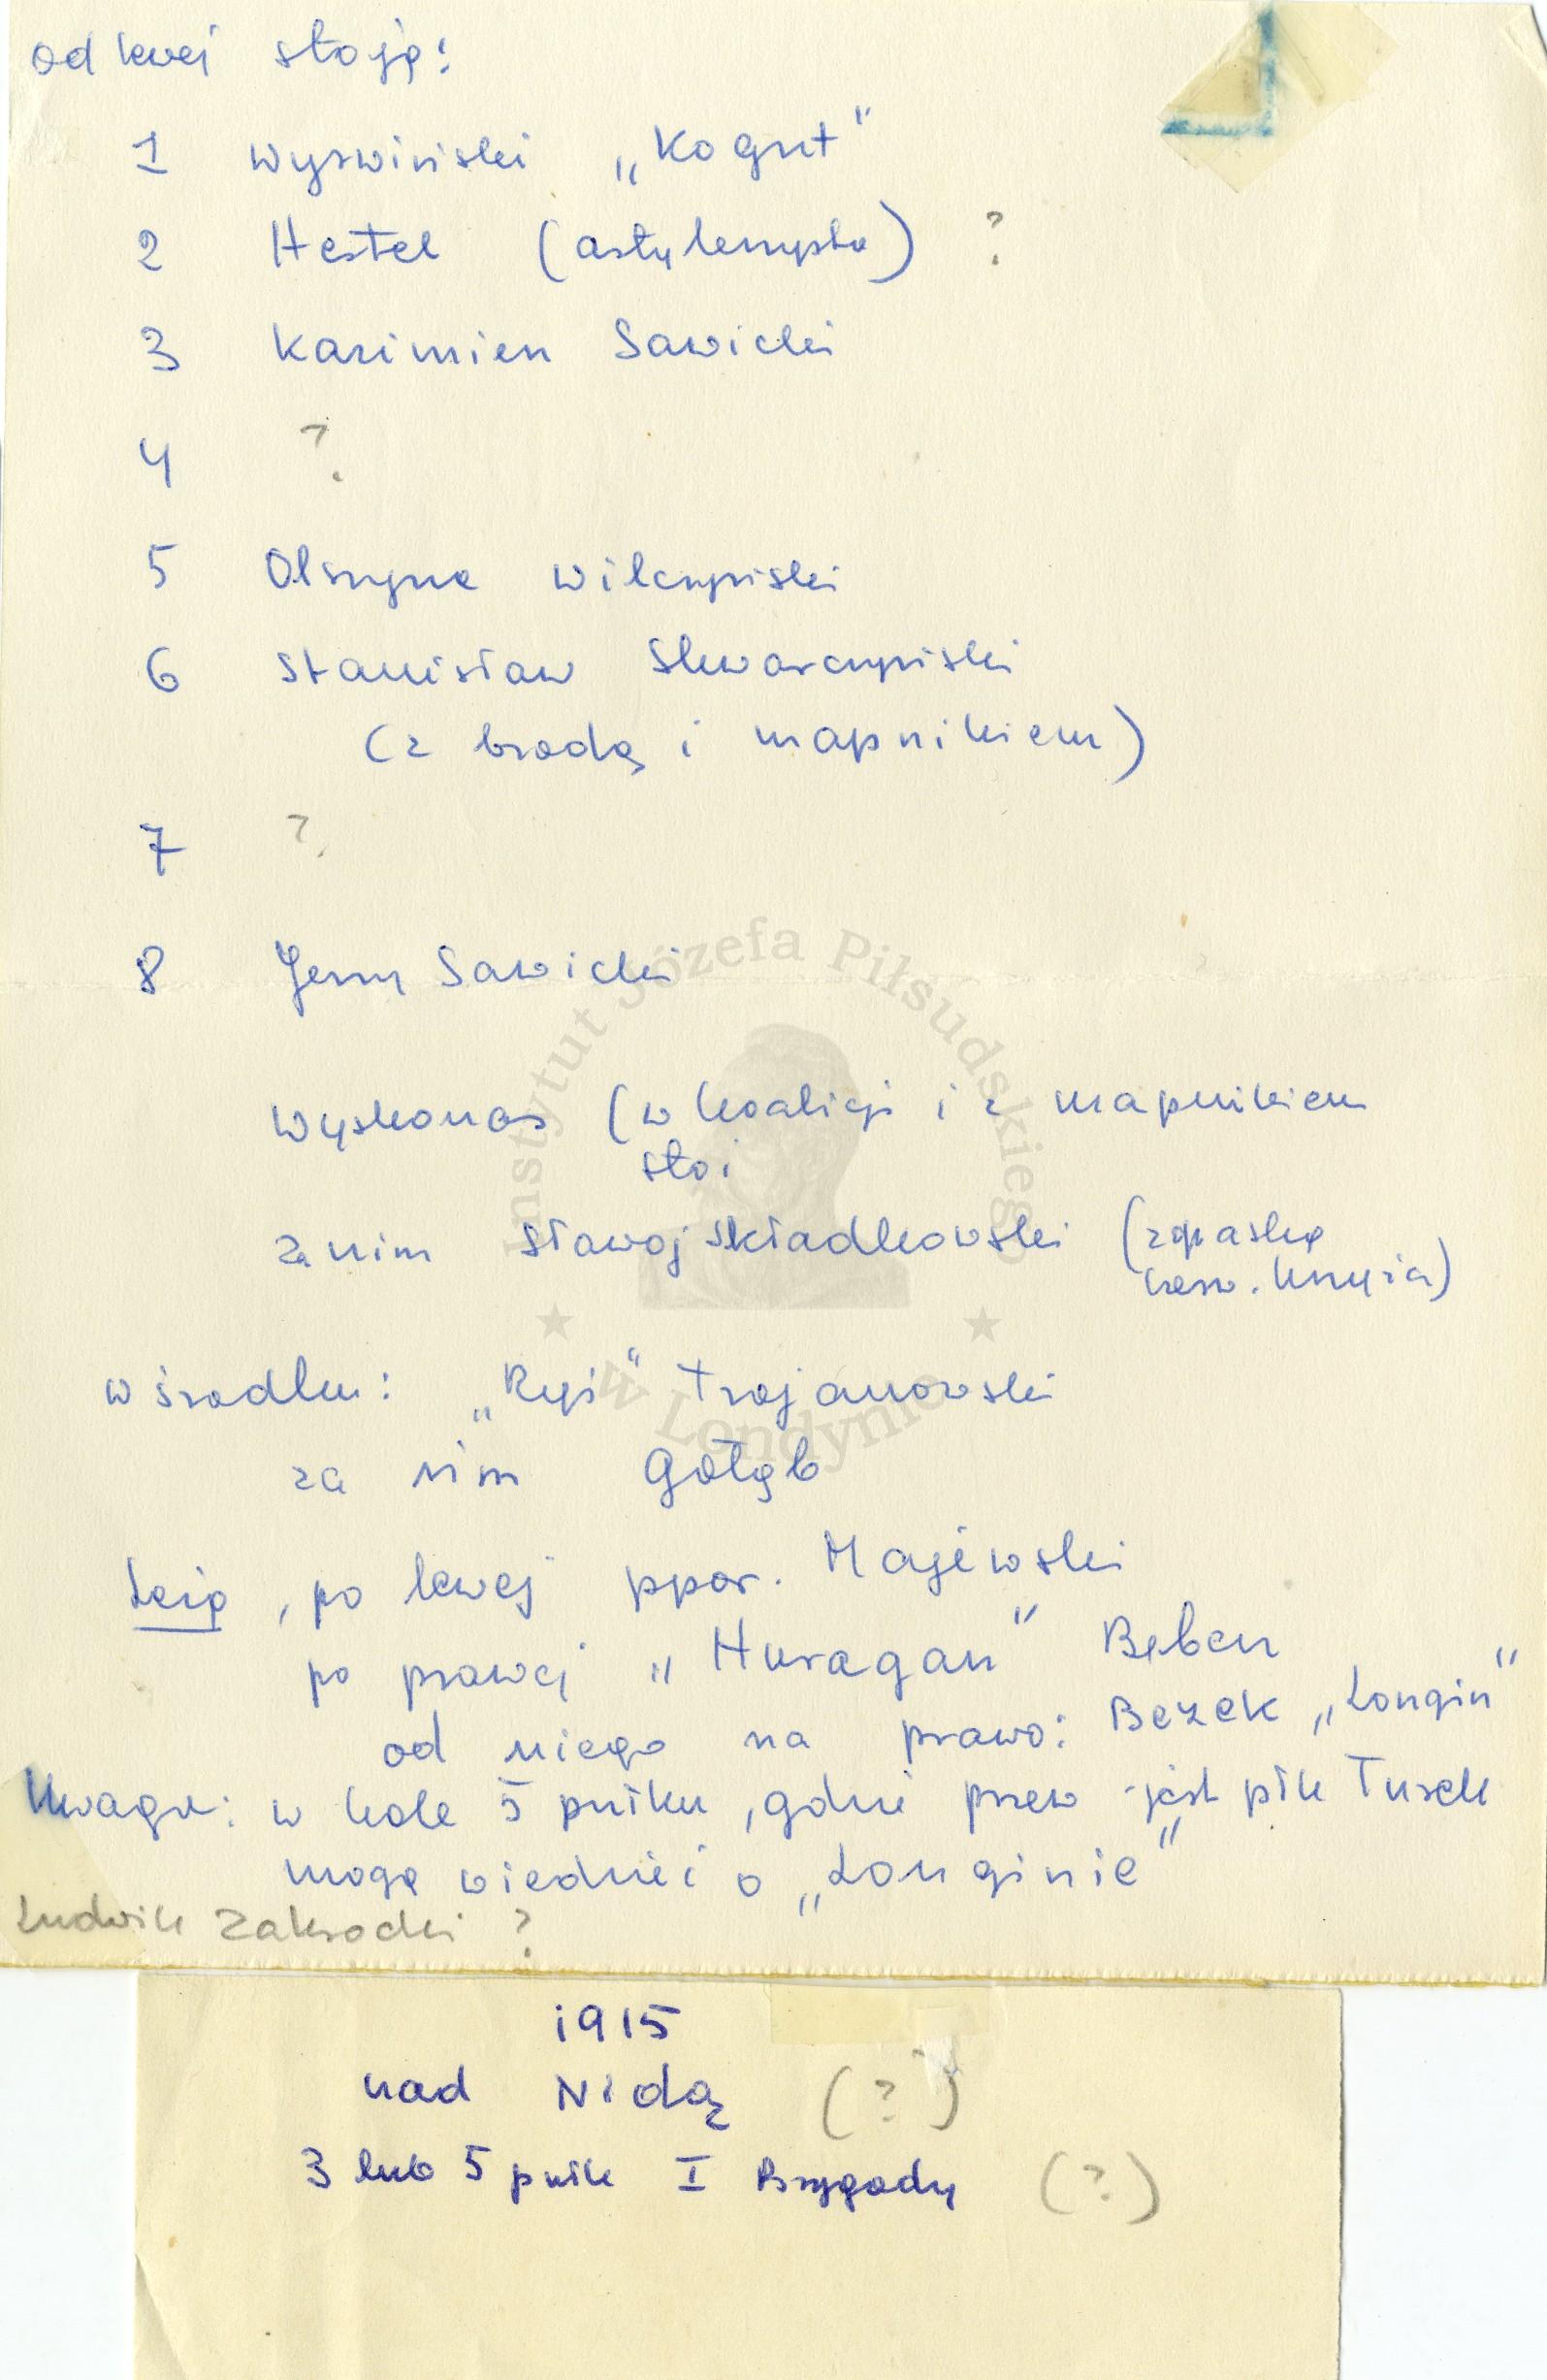 od lewej stoją:
1 Wyrwiński „Kogut"
2 Hestel (artylerzysta) ?
3 Kazimierz Sawicki
4 ?
5 Olszyna Wilczyński
6 Stanisław Skwarczyński
(z brodą i mapnikiem)
7 ?
8 Jerzy Sawicki
Wyskonos (w koalicji i z mapnikiem
stoi
za nim Sławoj Składkowski (z opaską
czerw. krzyża)
w środku: „Ryś" Trojanowski
za nim Gołąb
Leżą, po lewej ppor. Majewski
po prawej „Huragan" Bęben
od niego na prawo: Bezek „Longin"
Uwaga: w kole 5 pułku, gdzie prezw jest płk Turek
mogą wiedzieć o „Longinie"
Ludwik Zakrocki ?
1915
nad Nidą (?)
3 lub 5 pułk I Brygady (?)
Instytut Józefa Piłsudskiego
w Londynie